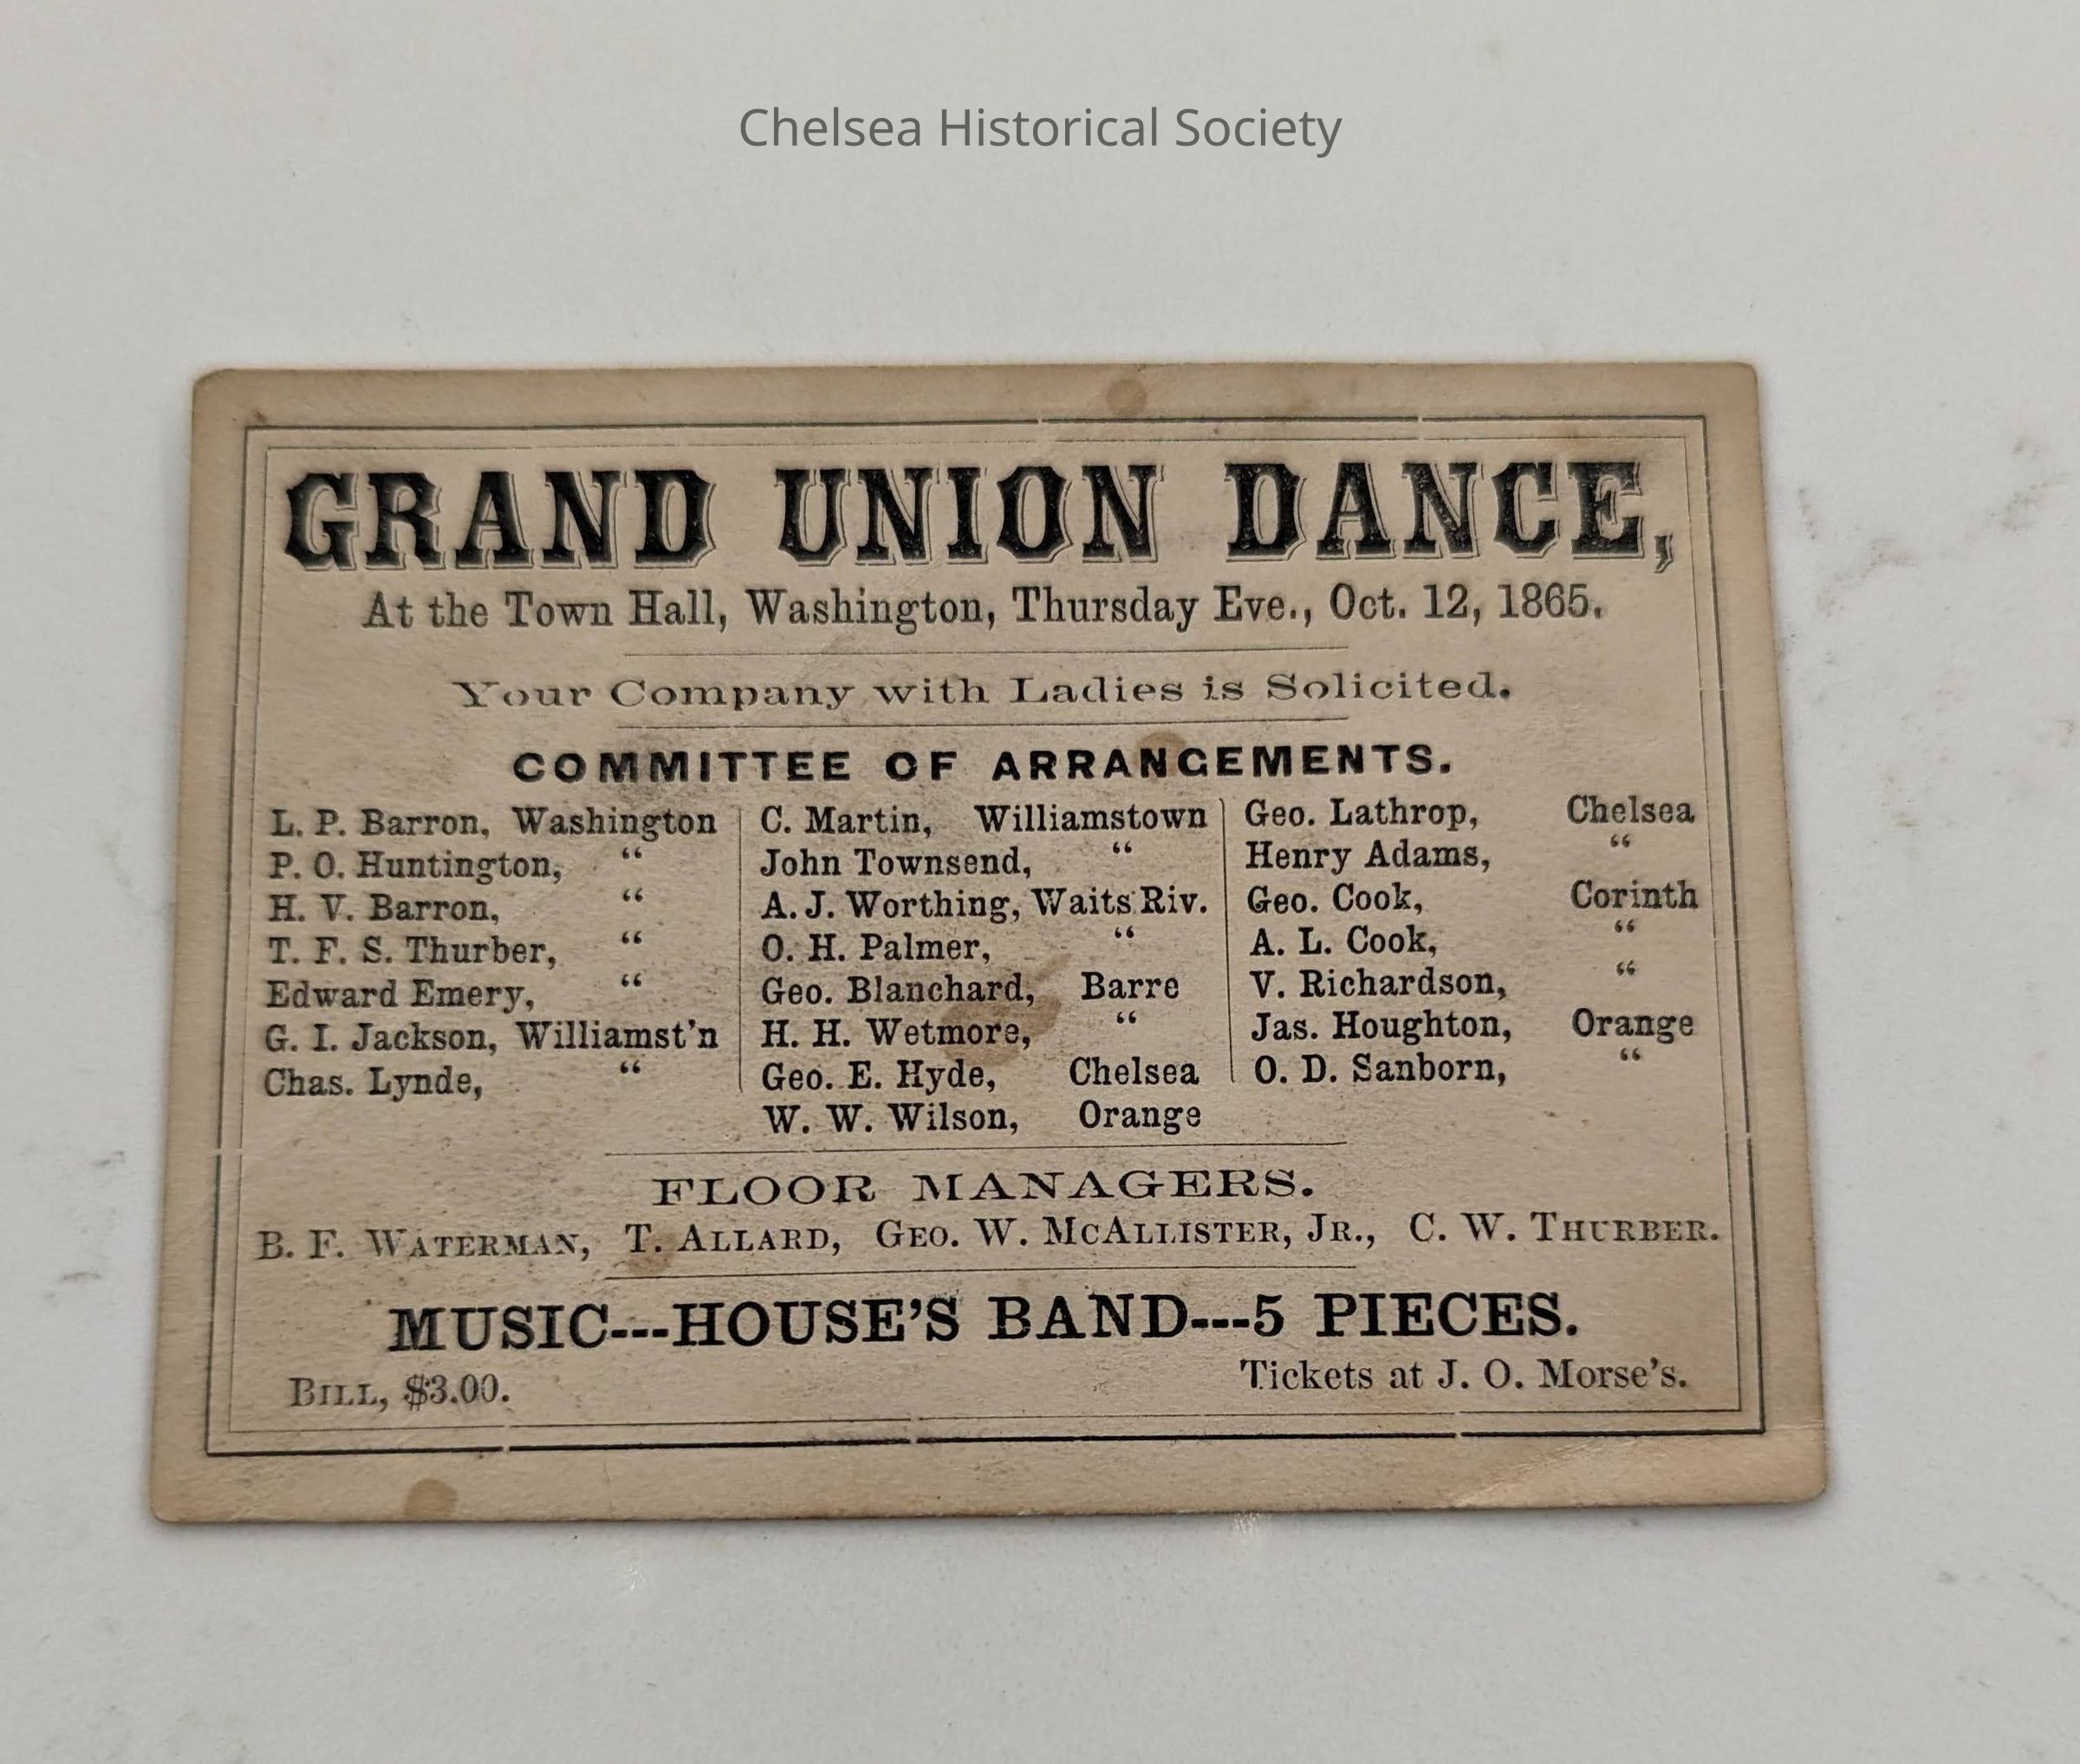 Chelsea Historical Society
GRAND UNION DANCE,
At the Town Hall, Washington, Thursday Eve., Oct. 12, 1865.
Your Company with Ladies is Solicited.
COMMITTEE OF ARRANGEMENTS.
L. P. Barron, Washington
P. O. Huntington, “
H. V. Barron, “
T. F. S. Thurber, “
Edward Emery, “
G. I. Jackson, Williamst'n
Chas. Lynde, “
C. Martin, Williamstown
John Townsend, “
A. J. Worthing, Waits Riv.
O. H. Palmer, “
Geo. Blanchard, Barre
H. H. Wetmore, “
Geo. E. Hyde, Chelsea
W. W. Wilson, Orange
Geo. Lathrop, Chelsea
Henry Adams, “
Geo. Cook, Corinth
A. L. Cook, “
V. Richardson, “
Jas. Houghton, Orange
O. D. Sanborn, “
FLOOR MANAGERS.
B. F. WATERMAN, T. ALLARD, GEO. W. MCALLISTER, JR., C. W. THURBER.
MUSIC---HOUSE'S BAND---5 PIECES.
BILL, $3.00.
Tickets at J. O. Morse's.